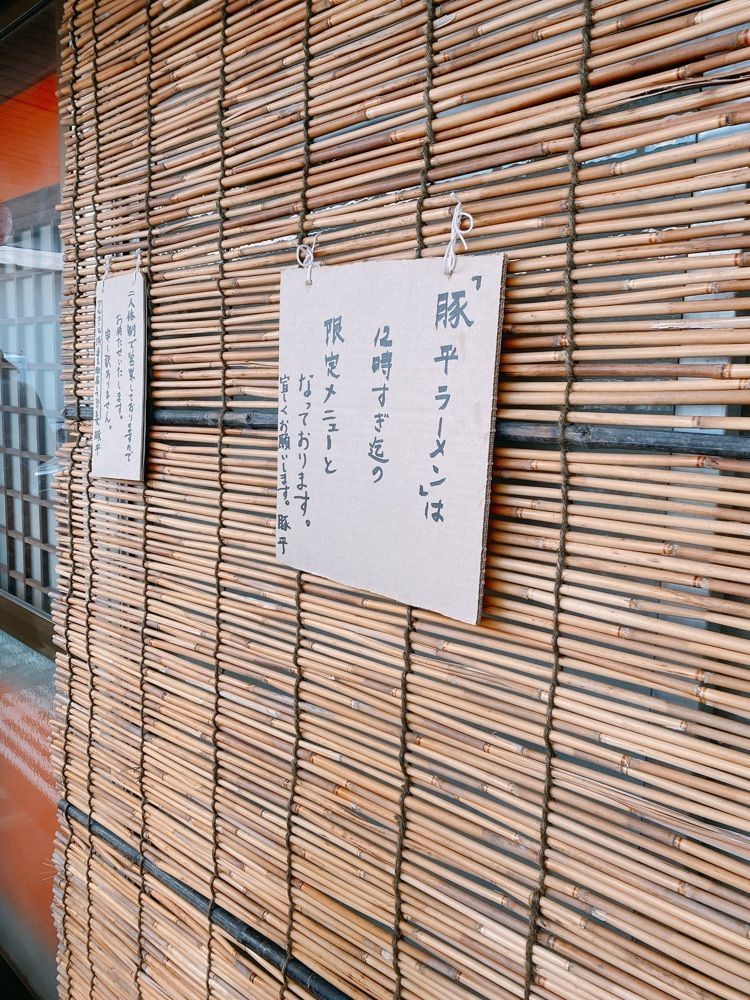 「豚平ラーメン」は
12時すぎ迄の
限定メニューと
なっております。
宜しくお願いします。豚平
二人体制で営業しておりますので
お待たせいたします。
申し訳ありません。
豚平